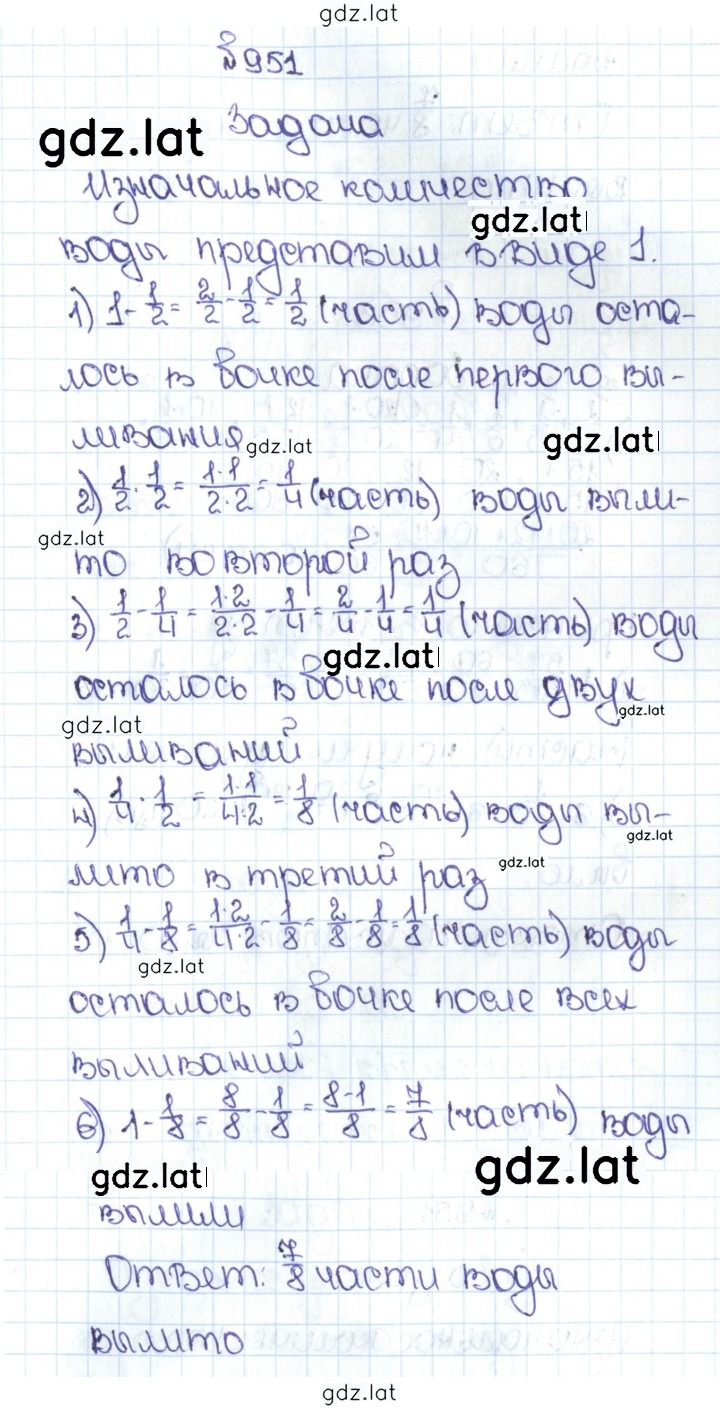 gdz.lat
№951
Задача
gdz.lat
Изначальное количество
gdz.lat
воды представим в виде 1.
1) 1-1/2=2/2-1/2=1/2 (часть) воды оста-
лось в бочке после первого вы-
ливания
gdz.lat
gdz.lat
2) 1/2·1/2=1·1/2·2=1/4 (часть) воды выли-
gdz.lat
то во второй раз
3) 1/2-1/4=1·2/2·2-1/4=2/4-1/4=1/4 (часть) воды
gdz.lat
осталось в бочке после двух
gdz.lat
gdz.lat
выливаний
4) 1/4·1/2=1·1/4·2=1/8 (часть) воды вы-
gdz.lat
лито в третий раз
gdz.lat
5) 1/4-1/8=1·2/4·2-1/8=2/8-1/8=1/8 (часть) воды
gdz.lat
осталось в бочке после всех
выливаний
6) 1-1/8=8/8-1/8=8-1/8=7/8 (часть) воды
gdz.lat
gdz.lat
вылили
Ответ: 7/8 части воды
вылито
gdz.lat